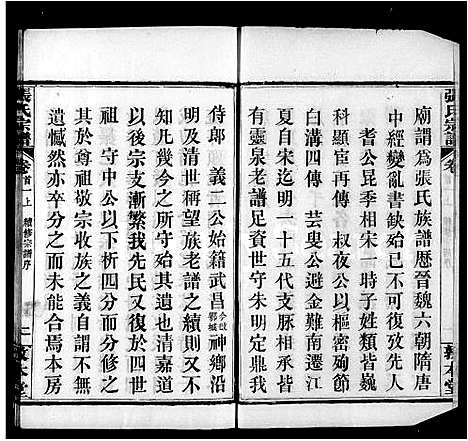 張氏宗譜
廟謂為張氏族譜歷晉魏六朝隋唐
中經變亂書缺殆已不可攷致先人
耆公昆季相宋一時子姓類皆巍
科顯宦四傳 叔夜公以樞密殉節
芸叟公避金難南遷江
夏自宋迄明二十五代支脈相承于
有靈泉老譜足資世守朱明定鼎我
侍郎 義二公始籍武昌今改鄂城神鄉沿
明及清世稱望族老譜之續則又不
知凡幾今之所守殆其道光嘉
以後宗支漸繁我先民又復於四世
祖 守中公以下析四分而分修之
其於尊祖敬宗收族之義自謂不無
遺憾然亦卒分之而未能合焉本房
張氏宗譜
卷首上 續修宗譜序
敦本堂